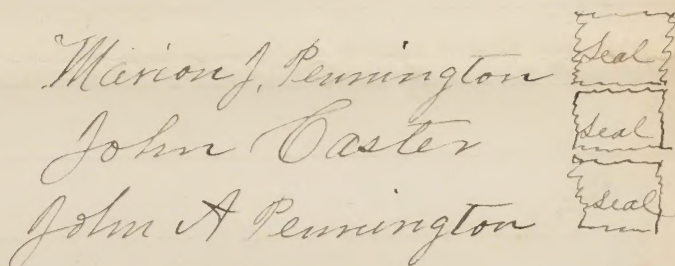 Marion J. Pennington Seal
John Caster Seal
John A Pennington Seal